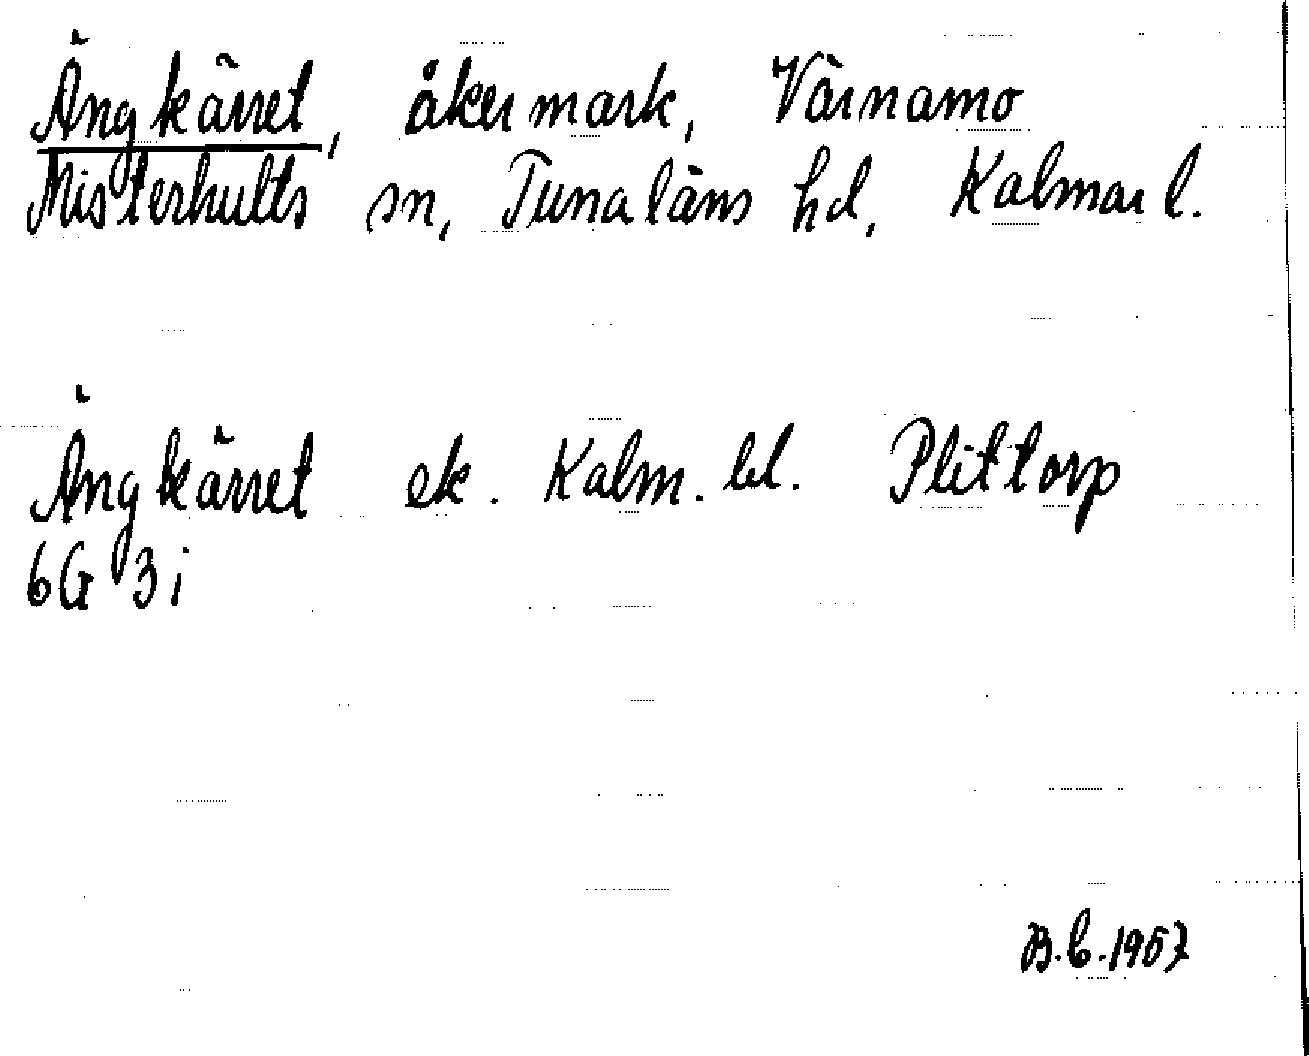 Ängkärret, åkermark, Värnamo
Misterhults sn, Tunaläns hd, Kalmar l.
Ängkärret ek. Kalm. bl. Plittorp
6G 3i
B.C.1957